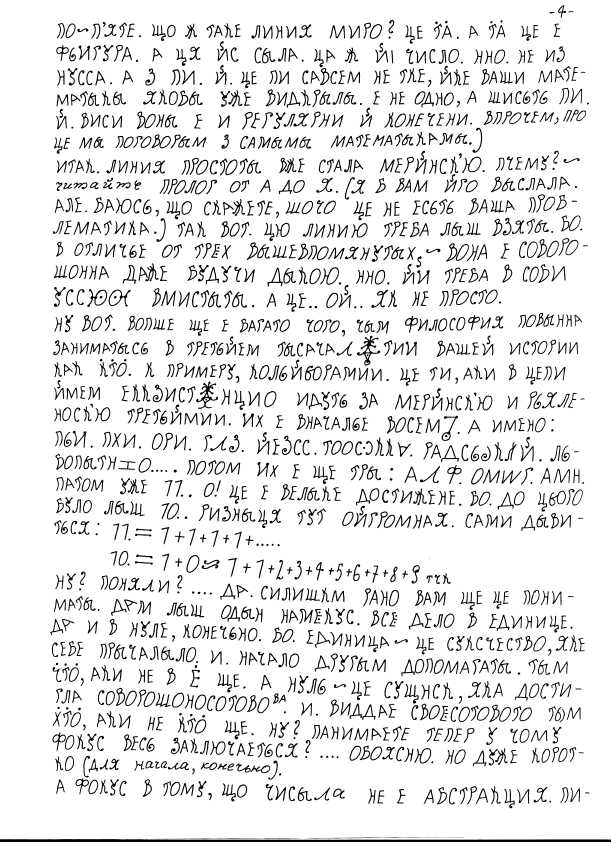 -4-
ПО~ПЪЯТЕ. ЩО Ж ТАКЕ ЛИНИЯ МИРО? ЦЕ ТӒ. А ТӒ ЦЕ Е
ФЬИГУРА. А ЦЯ ЙС СЫЛА. ЦА Ж ЙІ ЧИСЛО. ННО. НЕ ИЗ
НУССА. А З ПИ. Й. ЦЕ ПИ САВСЕМ НЕ ТКЕ, ЙКЕ ВАШИ МАТЕ-
МАТЫКЫ ЯКОБЫ УЖЕ ВИДКРЫЛЫ. Е НЕ ОДНО, А ШИСЬТЬ ПИ.
Й. ВИСИ ВОНЫ Е И РЕГУЛЯРНИ Й КОНЕЧЕНИ. ВПРОЧЕМ, ПРО
ЦЕ МЫ ПОГОВОРЫМ З САМЫМЫ МАТЕМАТЫКАМЫ.)
ИТАК. ЛИНИЯ ПРОСТОТЫ ВЖЕ СТАЛА МЕРЙНСК'Ю. ПЧЕМУ?~
читайте ПРОЛОГ ОТ А ДО Я. (Я Б ВАМ ЙГО ВЫСЛАЛА.
АЛЕ. БАЮСЬ, ЩО СКАЖЕТЕ, ШОЧО ЦЕ НЕ ЕСЬТЬ ВАША ПРОБ-
ЛЕМАТИКА.) ТАК ВОТ. ЦЮ ЛИНИЮ ТРЕБА ЛЫШ ВЗЯТЫ. БО.
В ОТЛИЧЬЕ ОТ ТРЕХ ВЫШЕВПОМЯНУТЫХ,~ ВОНА Е СОВОРО-
ШОННА ДАЖЕ БУДУЧИ ДЫКОЮ. ННО. ЙЙ ТРЕБА В СОБИ
УССЮЮ ВМИСТЫТЫ. А ЦЕ.. ОЙ.. ЯК НЕ ПРОСТО.
НУ ВОТ. ВОПШЕ ЩЕ Е БАГАТО ЧОГО, ЧЫМ ФИЛОСОФИЯ ПОВЫННА
ЗАНИМАТЫСЬ В ТРЕТЬЙЕМ ТЫСАЧАЛ ТИИ ВАШЕЙ ИСТОРИИ
КАК КТӦ. К ПРИМЕРУ, КОЛЬЙВОРАМИИ. ЦЕ ТИ, АКИ В ЦЕПИ
ЙМЕМ ЕККЗИСТ НЦИО ИДУТЬ ЗА МЕРЙНСК'Ю И РЬЯЛЕ-
НОСК'Ю ТРЕТЬЙМИИ. ИХ Е ВНАЧАЛЬЕ ВОСЕМ. А ИМЕНО:
ПЬИ. ПХИ. ОРИ. ГЛЗ. ЙЕЗСС. ЛЮ-
БОПЫТН О..... ПОТОМ ИХ Е ЩЕ ТРЫ: АЛФ. ОМѠГ. АМН.
ПАТОМ УЖЕ 11.. О! ЦЕ Е ВЕЛЫКЕ ДОСТИЖЕНЕ. БО. ДО ЦЬОГО
БУЛО ЛЫШ 10.. РИЗНЫЦЯ ТУТ ОЙГРОМНАЯ. САМИ ДЫВИ-
ТЬСЯ: 11.= 1+1+1+1+.....
10.= 1+0~ 1+1+2+3+4+5+6+7+8+9 тчк
НУ? ПОНЯЛИ? .... ДР. СИЛИШКМ РАНО ВАМ ЩЕ ЦЕ ПОНИ-
МАТЫ. ДРМ ЛЫШ ОДЫН НАМЕКУС. ВСЁ ДЕЛО В ЕДИНИЦЕ.
ДР И В НУЛЕ, КОНЕЧЬНО. БО. ЕДИНИЦА~ ЦЕ СУКСЧЕСТВО, ЯКЕ
СЕБЕ ПРЫЧАЛЫЛО. И. НАЧАЛО ДРУГЫМ ДОПОМАГАТЫ. ТЫМ
ЧТӦ, АКИ НЕ В Ё ЩЕ. А НУЛЬ~ ЦЕ СУЩНСК, ЯКА ДОСТИ-
ГЛА СОВОРОШОНОСОТОВО ВА. И. ВИДДАЕ СВОЕСОТОВОТО ТЫМ
ХТӦ, АКИ НЕ КТӦ ЩЕ. НУ? ПАНИМАЕТЕ ТЕПЕР У ЧОМУ
ФОКУС ВЕСЬ ЗАКЛЮЧАЕТЬСЯ? .... ОБОЯСНЮ. НО ДУЖЕ КОРОТ-
КО (для начала, конечьно).
А ФОКУС В ТОМУ, ЩО ЧИСЫЛА НЕ Е АБСТРАКЦИЯ. ПИ-